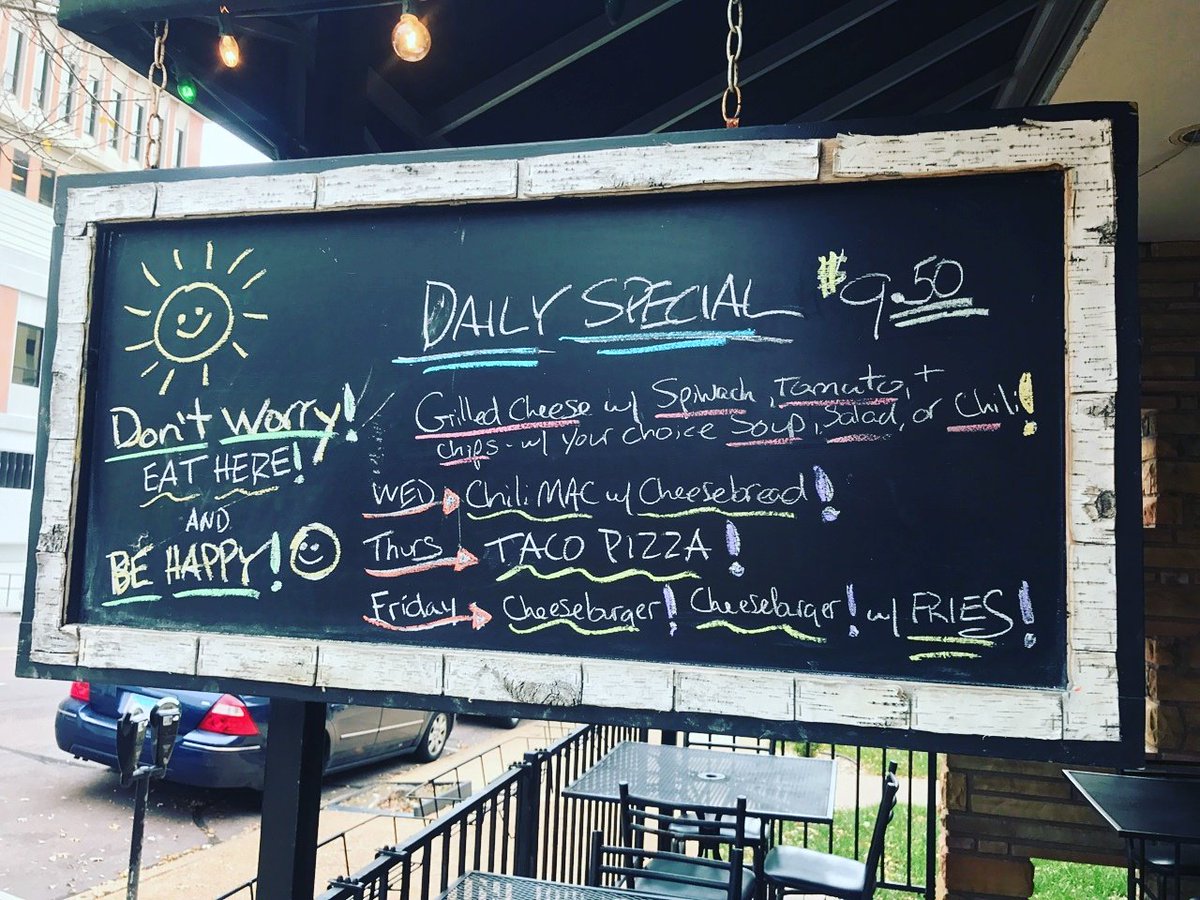 Don't Worry!
EAT HERE!
AND
BE HAPPY!
DAILY SPECIAL $9.50
Grilled Cheese w/ Spinach, Tomato, +
chips - w/ your choice Soup, Salad, or Chili!
WED → Chili MAC w/ Cheesebread!
Thurs → TACO PIZZA!
Friday → Cheeseburger! Cheeseburger! w/ FRIES!